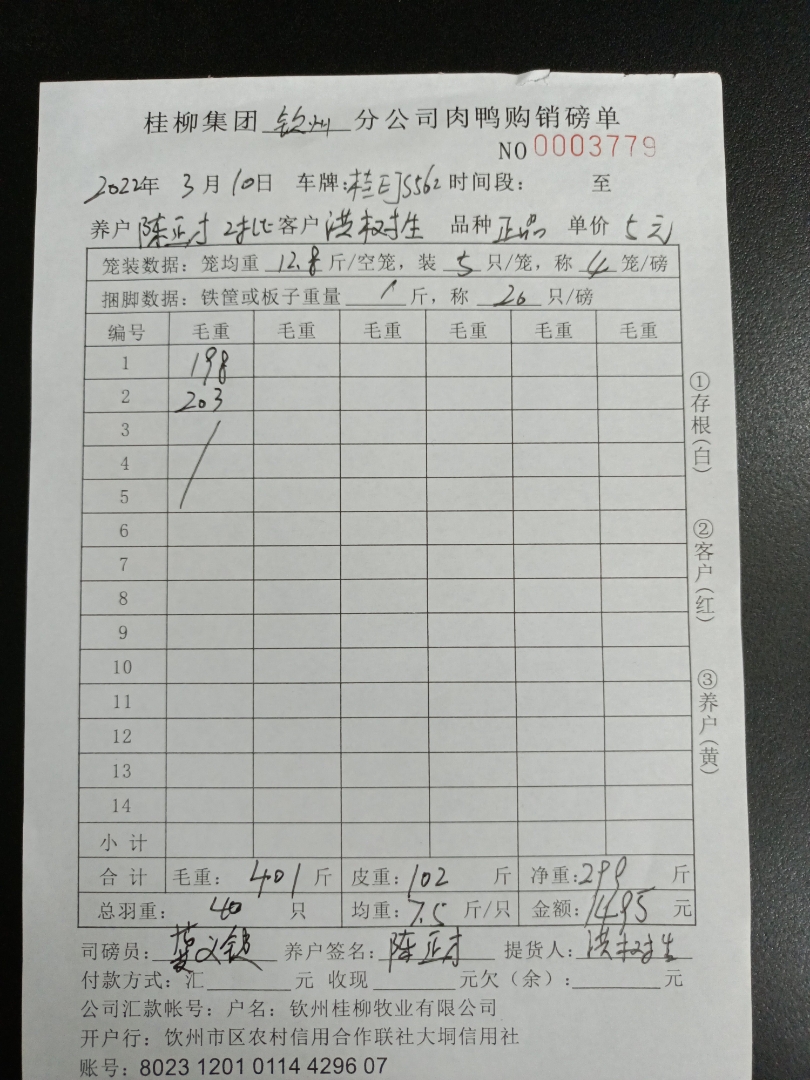 桂柳集团 钦州 分公司肉鸭购销磅单
NO 0003779
2022年 3月10日 车牌:桂EJ5562 时间段: 至
养户 陈正才 2批 客户 洪树生 品种 正品 单价 5元
笼装数据:笼均重 12.8 斤/空笼,装 5 只/笼,称 4 笼/磅
捆脚数据:铁筐或板子重量 / 斤,称 20 只/磅
编号 毛重 毛重 毛重 毛重 毛重 毛重
1 198
2 203
3
4
5
6
7
8
9
10
11
12
13
14
小计
合计 毛重: 401 斤 皮重: 102 斤 净重: 299 斤
总羽重: 40 只 均重: 7.5 斤/只 金额: 1495 元
司磅员: 养户签名: 陈正才 提货人: 洪树生
付款方式:汇 元 收现 元欠(余): 元
公司汇款帐号:户名:钦州桂柳牧业有限公司
开户行:饮州市区农村信用合作联社大垌信用社
账号:8023 1201 0114 4296 07
①存根(白)
②客户(红)
③养户(黄)